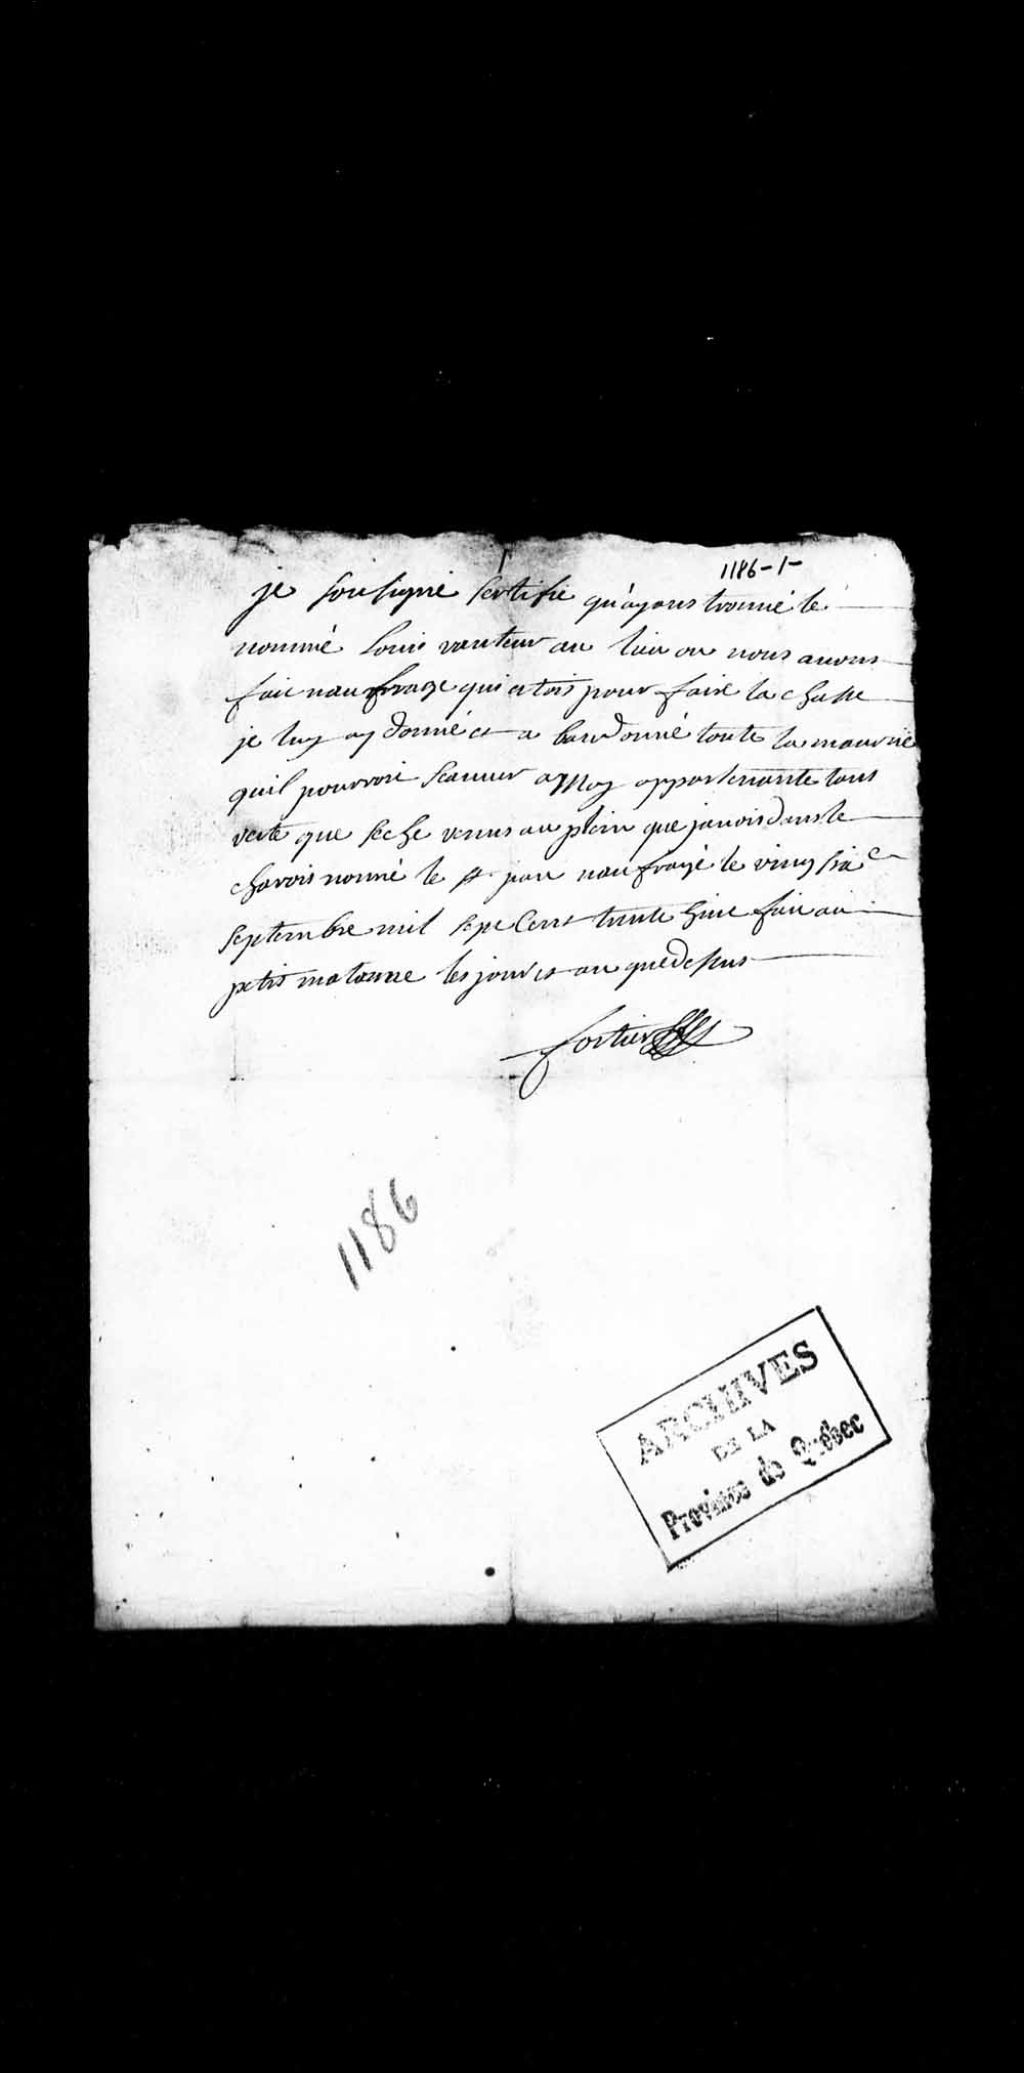 1186-1-
je sousigné sertifie qu'ayans trouvé le
nommé Louis vauteur au lieu ou nous avons
fait naufrage qui etois pour faire la chasse
je luy ay donné et a bandonné toute la mourue
quil pourroit seauver a Moy appartenante tans
verte que seche venus au plein que javois dans le
charois nommé le st jean naufragé le vingt six e
septembre mil sept Cent trente
petis matanne les jour et an que desus
fortier
1186
ARCHIVES
DE LA
Province de Québec